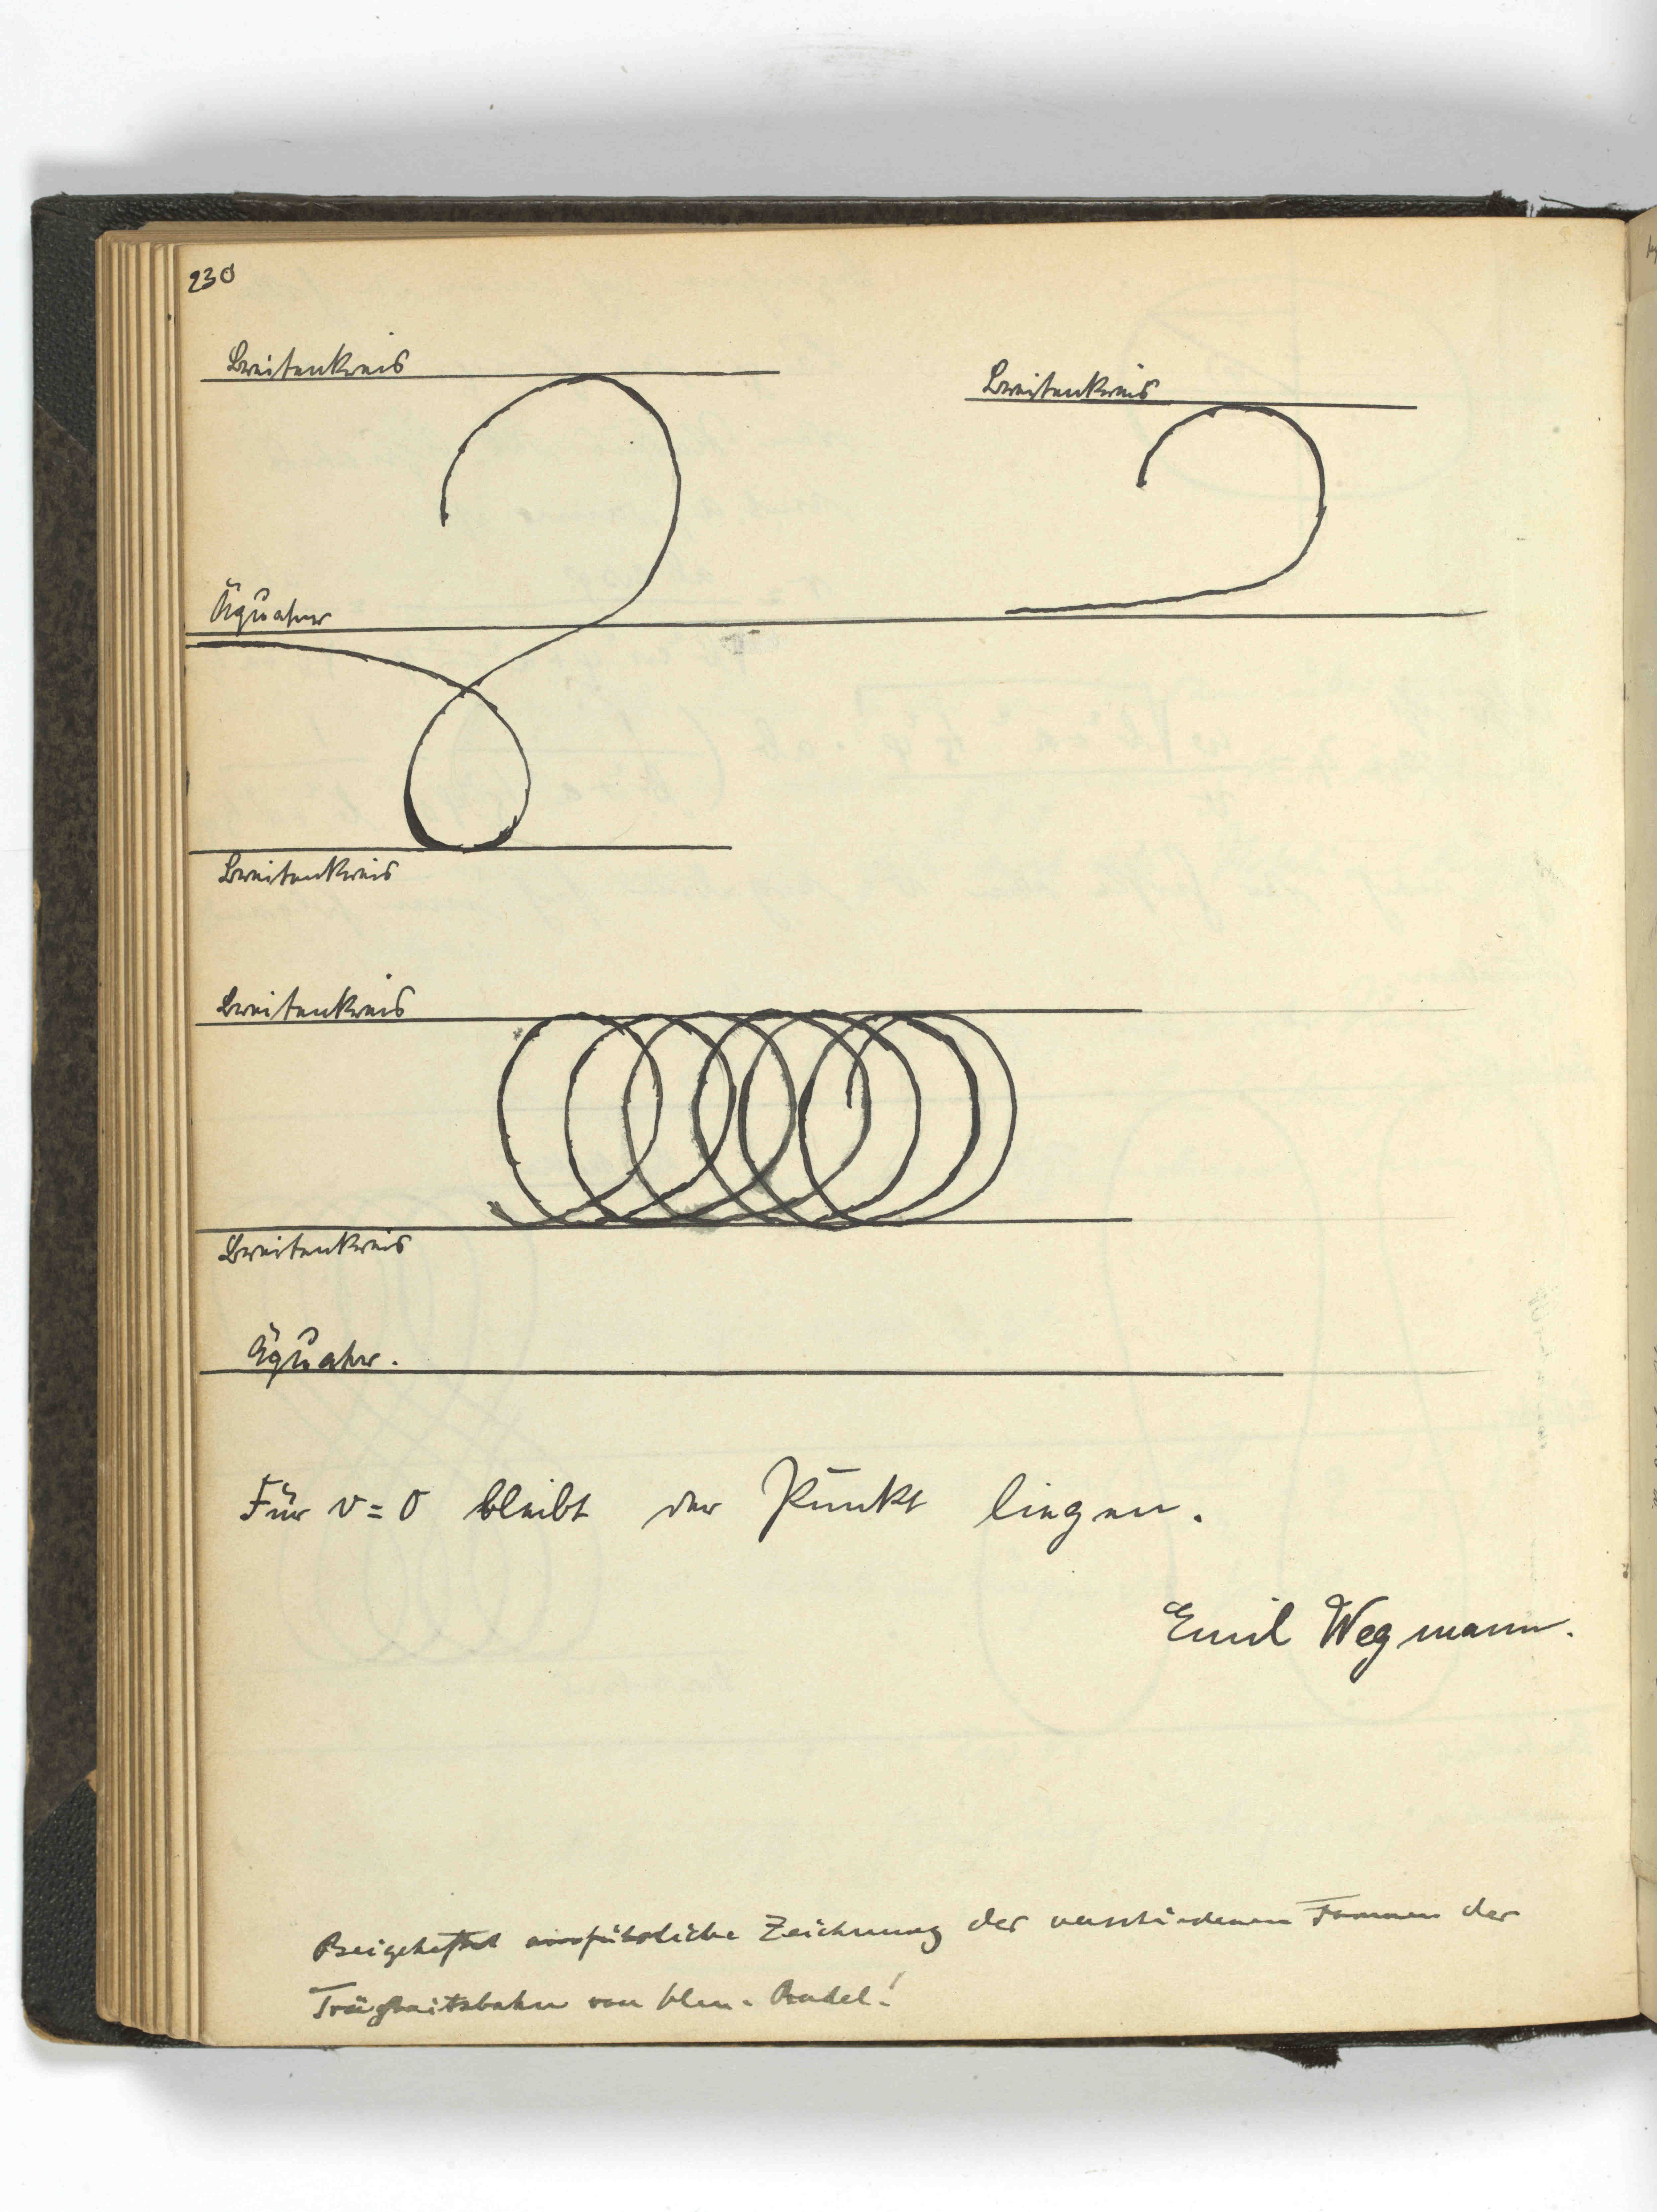 230
Breitenkreis
Breitenkreis
Äquator
Breitenkreis
Breitenkreis
Breitenkreis
Äquator.
Für v=0 bleibt der Punkt liegen.
Emil Wegmann.
Beigeheftet ausführliche Zeichnung der verschiedenen Formen der
Trägheitsbahn von